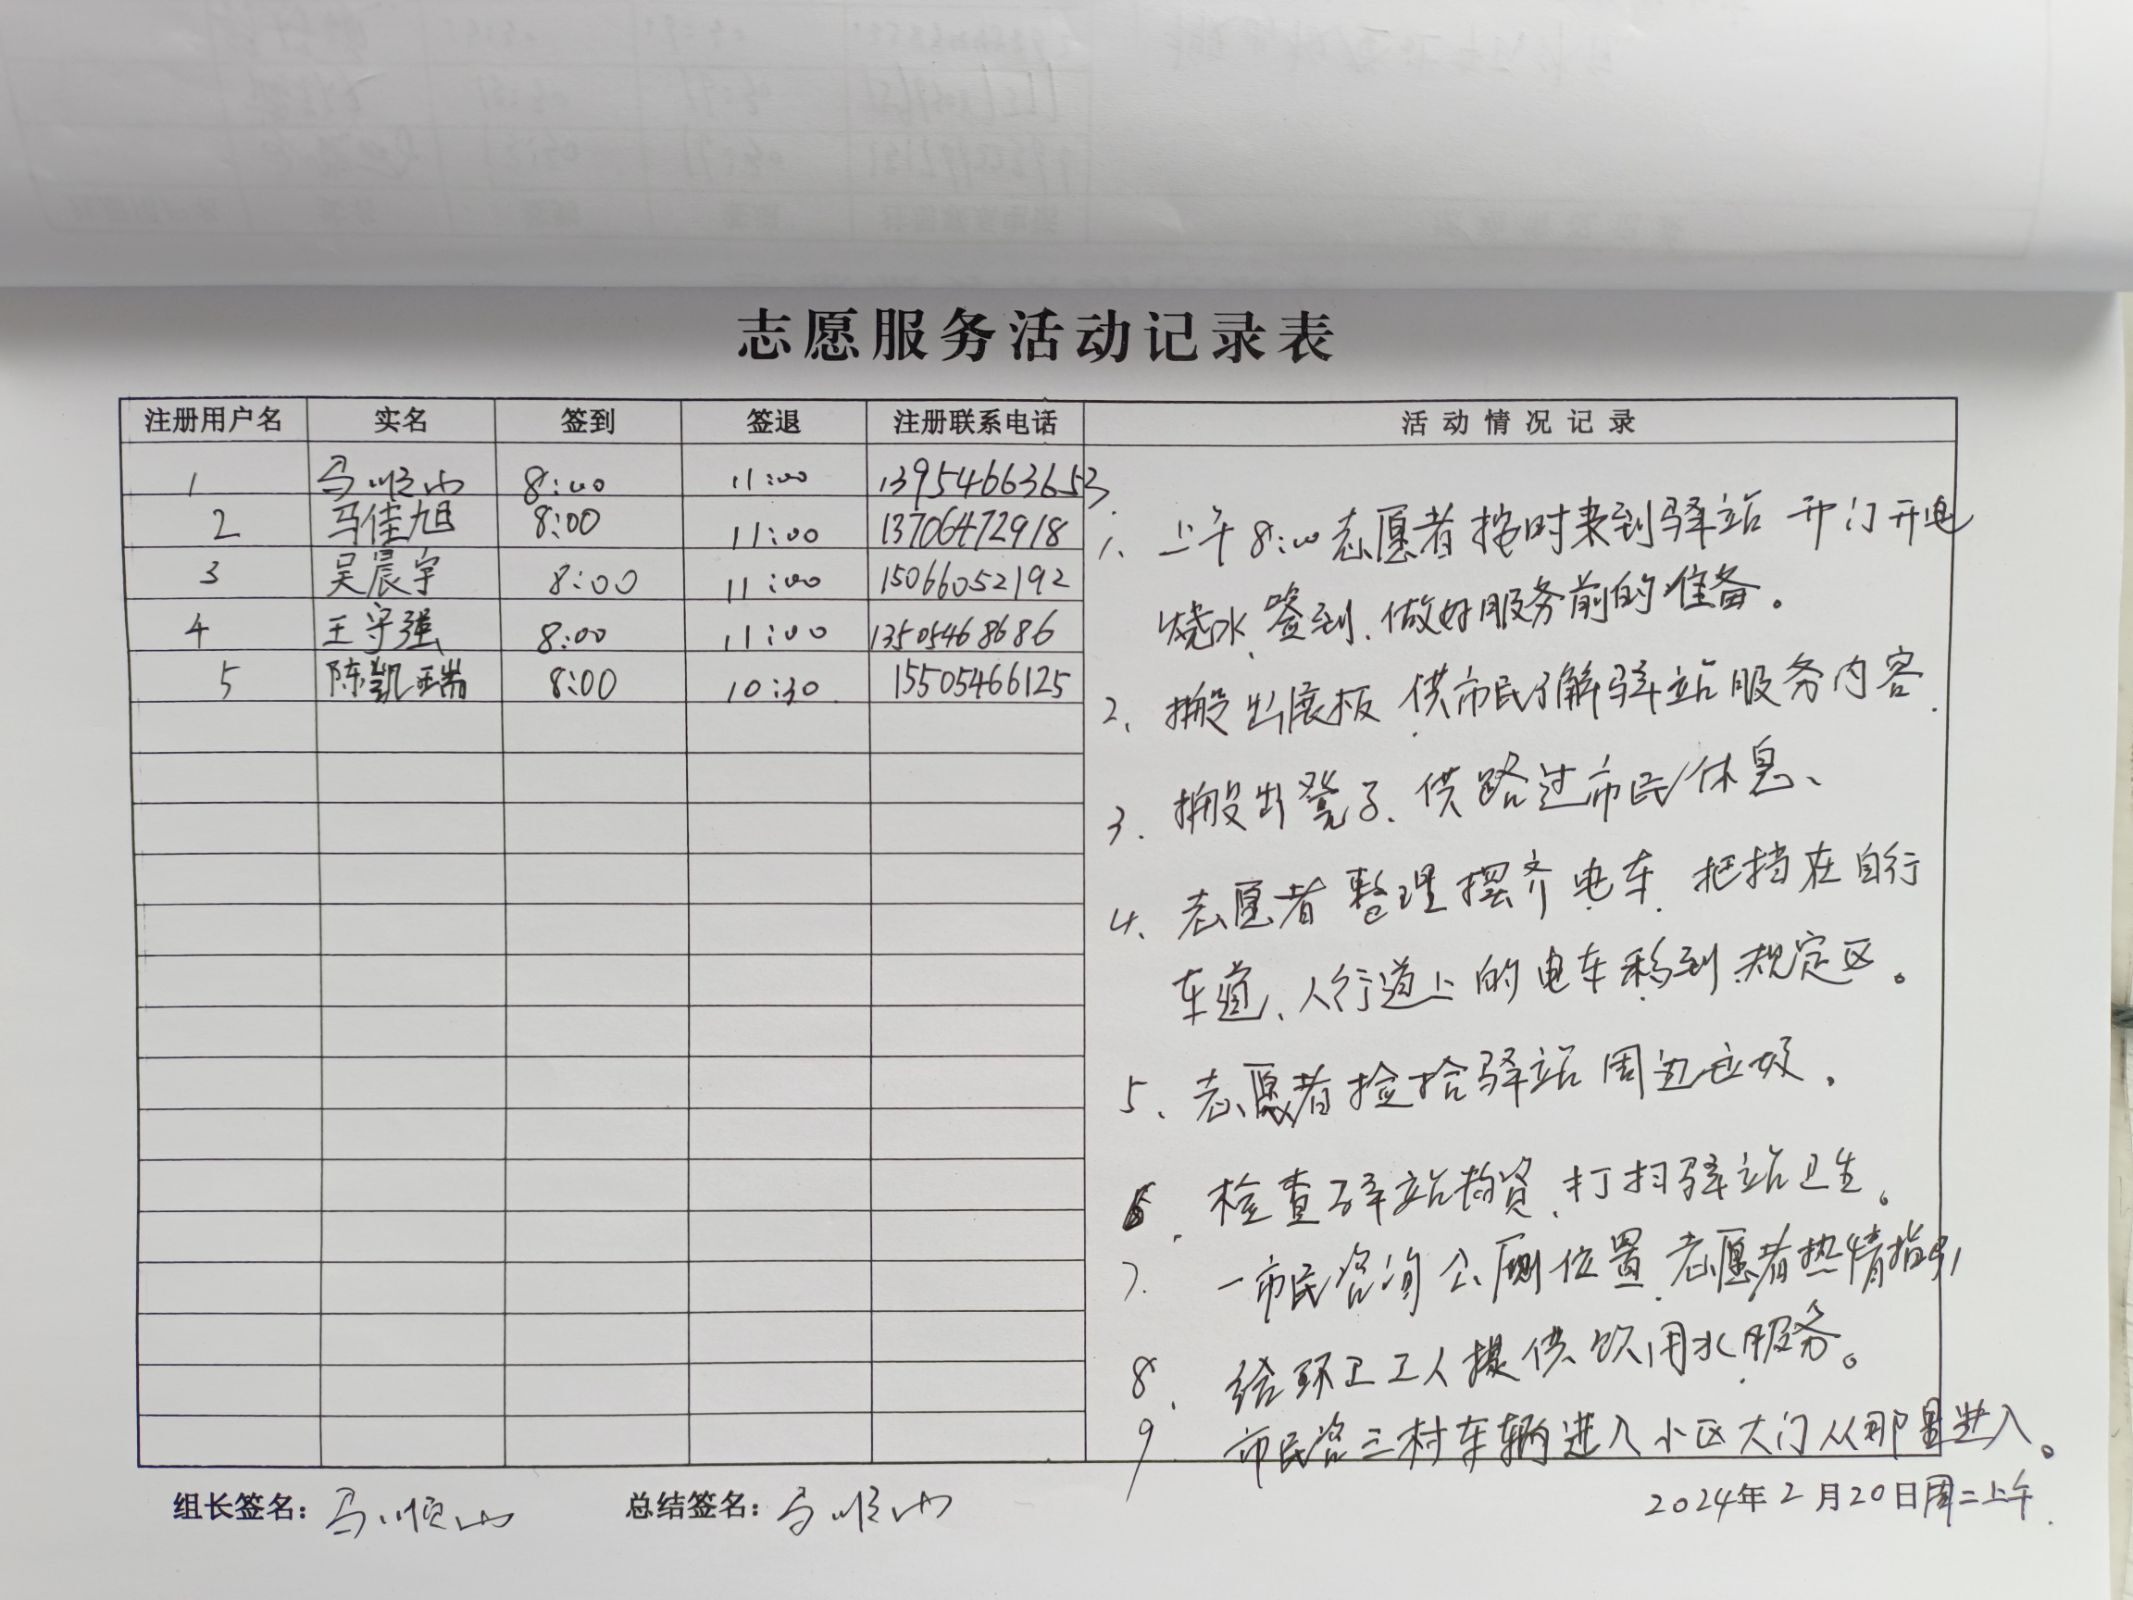 志愿服务活动记录表
注册用户名 实名 签到 签退 注册联系电话 活动情况记录
1 马顺山 8:00 11:00 13954663653
2 马佳旭 8:00 11:00 13706472918
3 吴晨宇 8:00 11:00 15066052192
4 王守强 8:00 11:00 13505468686
5 陈凯瑞 8:00 10:30 15505466125
1、上午8:00志愿者按时来到驿站 开门开电
烧水、签到、做好服务前的准备。
2、搬出展板 供市民了解驿站服务内容.
3、搬出凳子、供路过市民休息、
4、志愿者整理摆齐电车、把挡在自行
车道、人行道上的电车移到规定区。
5、志愿者捡拾驿站周边垃圾.
6、检查驿站物资,打扫驿站卫生。
7. 一市民咨询公厕位置,志愿者热情指引
8、给环卫工人提供饮用水服务。
9 市民咨三村车辆进入小区大门从那里进入。
组长签名:马顺山 总结签名:马顺山 2024年2月20日周二上午.